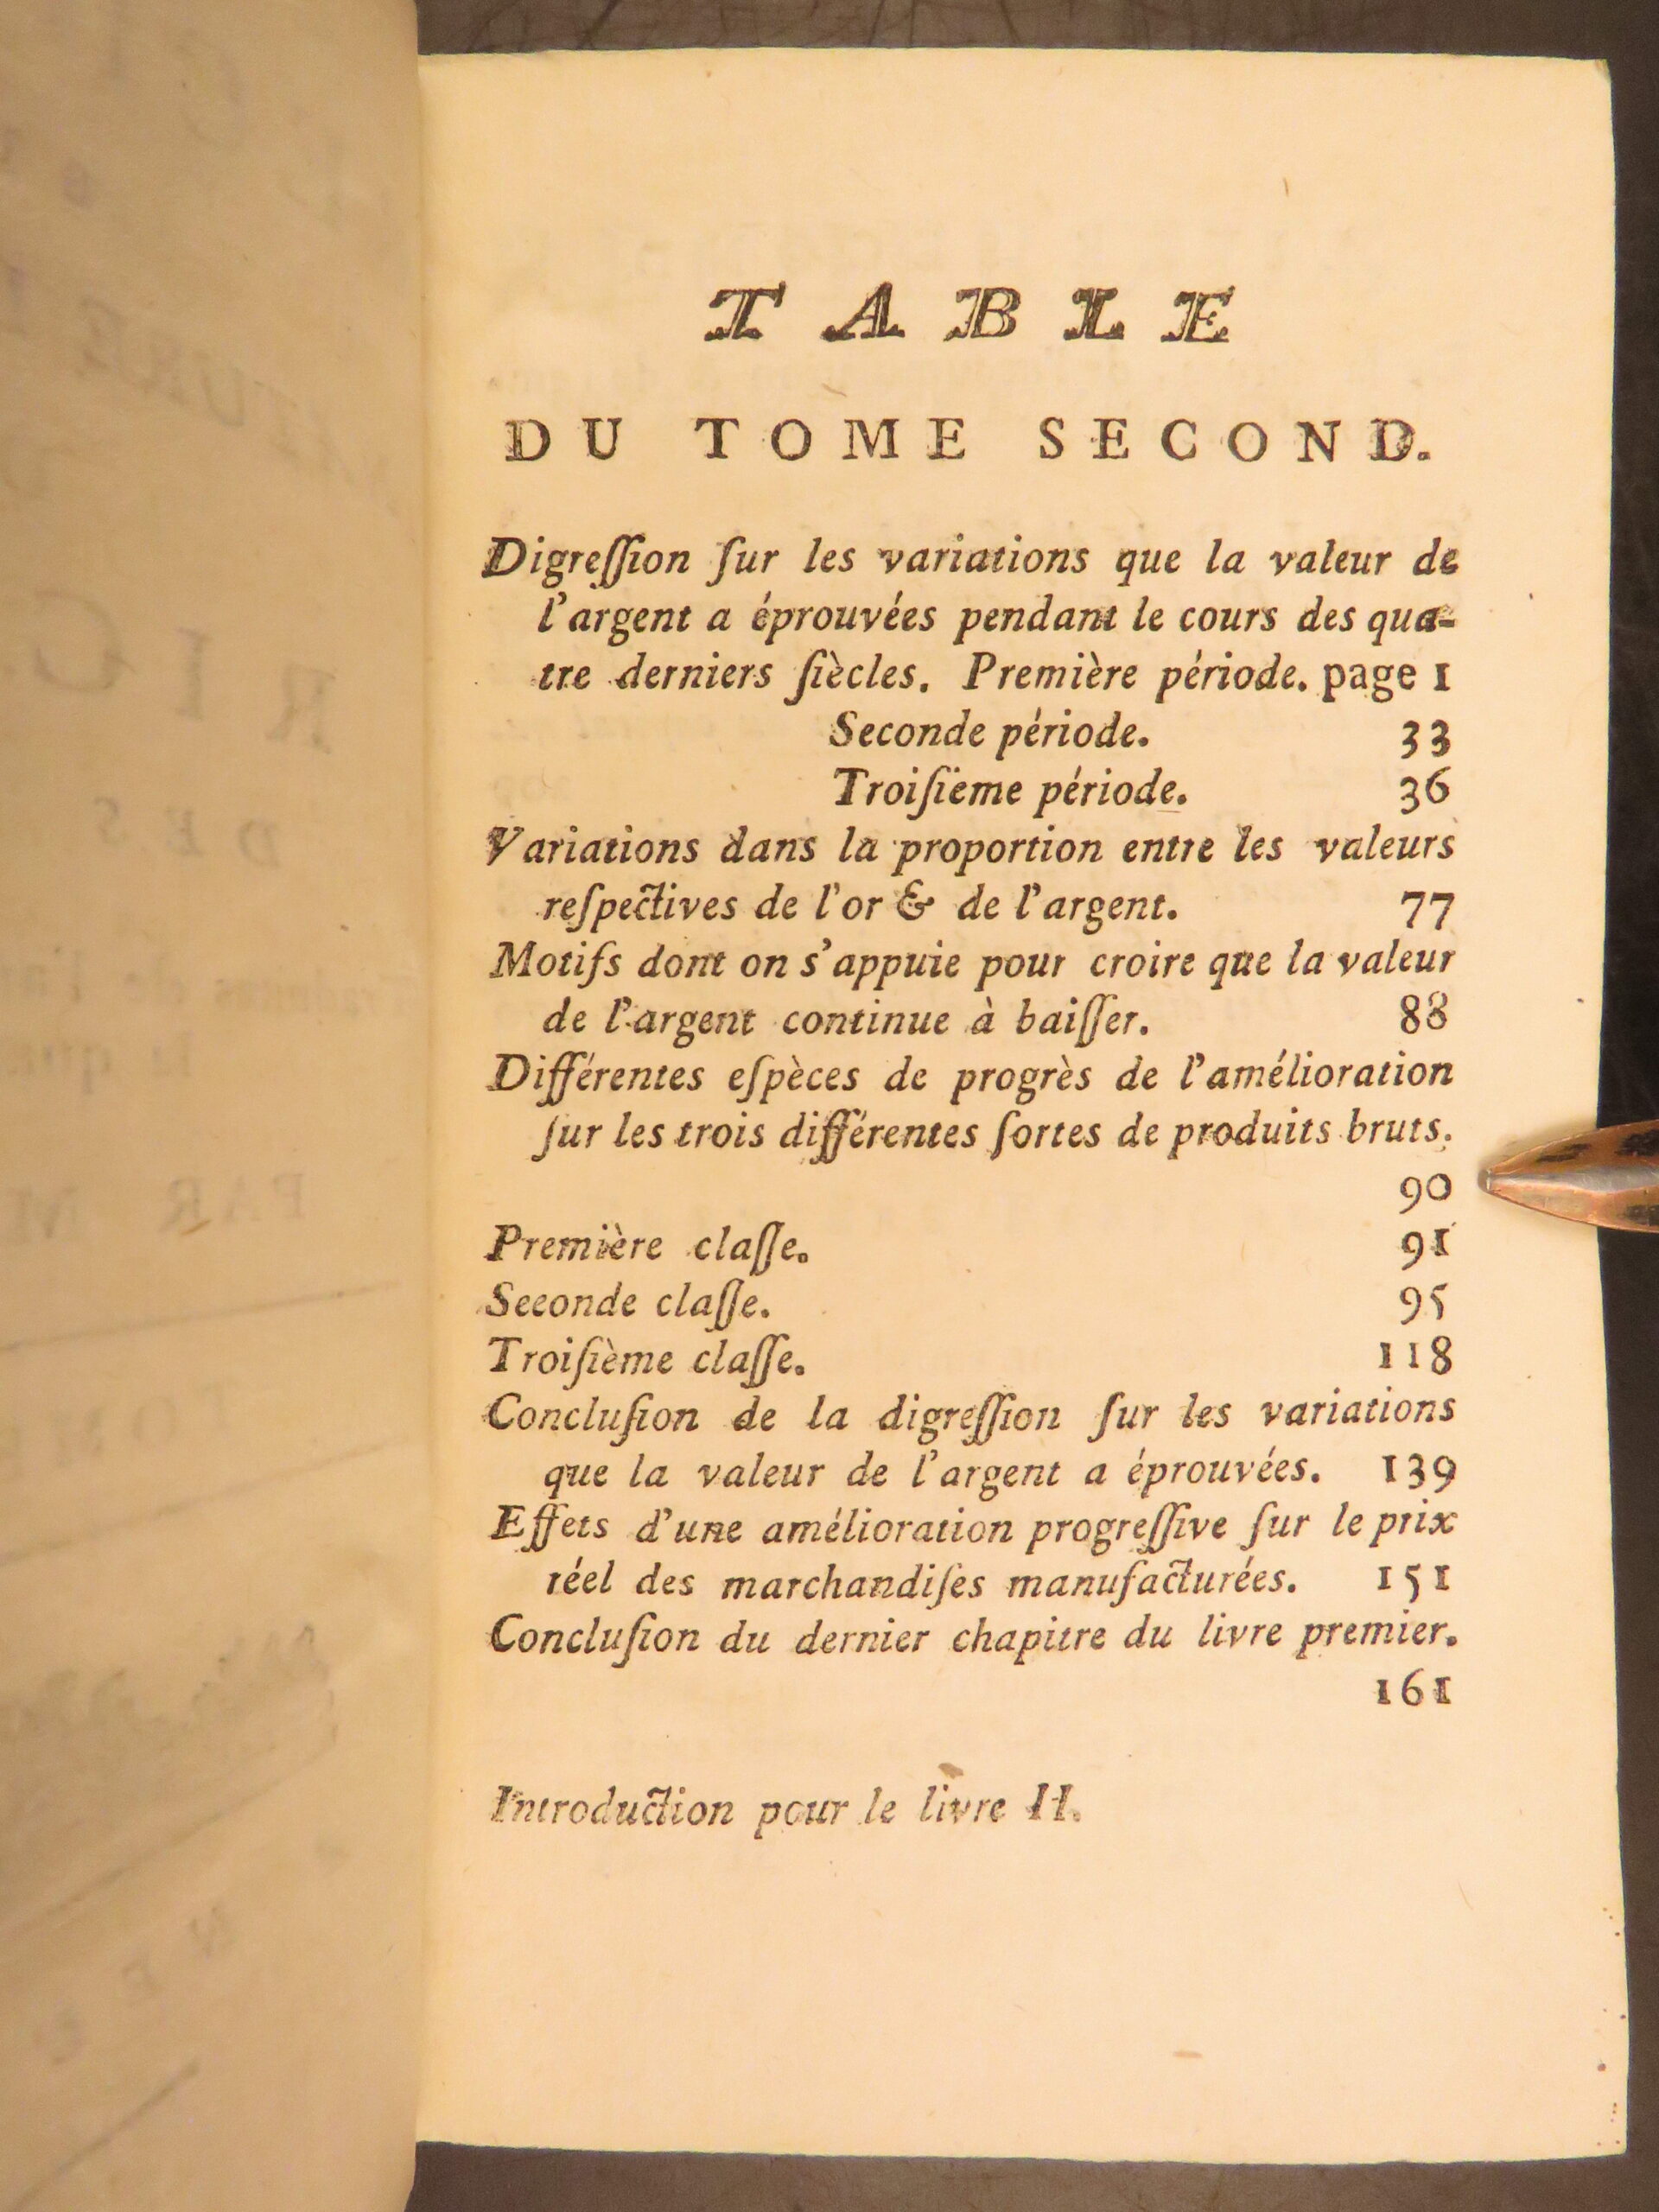 TABLE
DU TOME SECOND.
Digreſſion ſur les variations que la valeur de
l'argent a éprouvées pendant le cours des qua-
tre derniers ſiècles. Première période. page 1
Seconde période. 33
Troiſième période. 36
Variations dans la proportion entre les valeurs
reſpectives de l'or & de l'argent. 77
Motifs dont on s'appuie pour croire que la valeur
de l'argent continue à baiſſer. 88
Différentes eſpèces de progrès de l'amélioration
ſur les trois différentes ſortes de produits bruts.
90
Première claſſe. 91
Seconde claſſe. 95
Troiſième claſſe. 118
Concluſion de la digreſſion ſur les variations
que la valeur de l'argent a éprouvées. 139
Effets d'une amélioration progreſſive ſur le prix
réel des marchandiſes manufacturées. 151
Concluſion du dernier chapitre du livre premier.
161
Introduction pour le livre II.